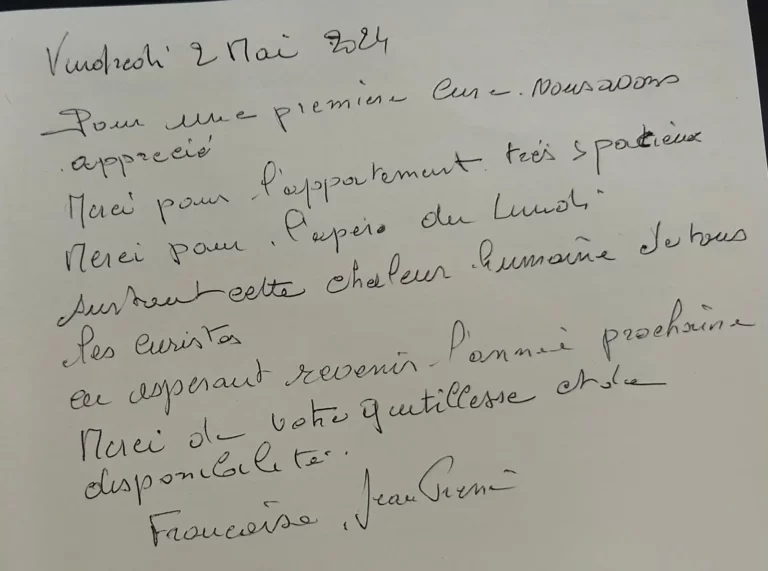 Vendredi 2 Mai 2024
Pour une première Cure. Nous avons
apprecié
Merci pour l'appartement très spatieux
Merci pour l'apéro du Lundi
surtout cette chaleur humaine de tous
les curistes
en esperant revenir l'année prochaine
Merci de votre gentillesse et de
disponibilité.
Francoise, Jean Pierre